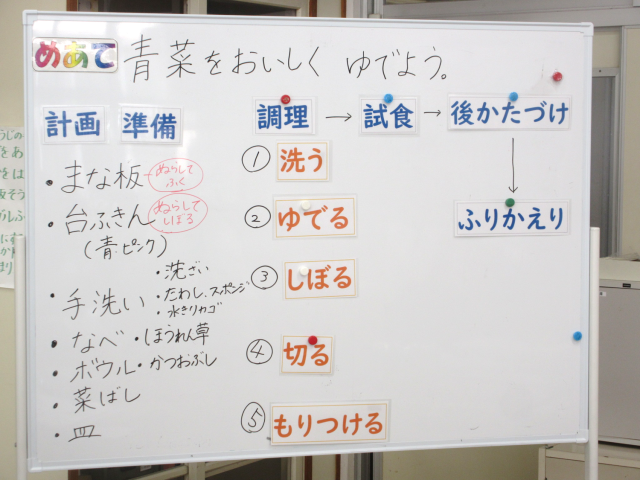 めあて 青菜をおいしく ゆでよう。
計画 準備 調理 → 試食 → 後かたづけ
↓
ふりかえり
・まな板 ぬらしてふく
・台ふきん ぬらしてしぼる
(青ピンク)
・手洗い
・洗ざい
・たわし、スポンジ
・水きりカゴ
・なべ ・ほうれん草
・ボウル ・かつおぶし
・菜ばし
・皿
① 洗う
② ゆでる
③ しぼる
④ 切る
⑤ もりつける